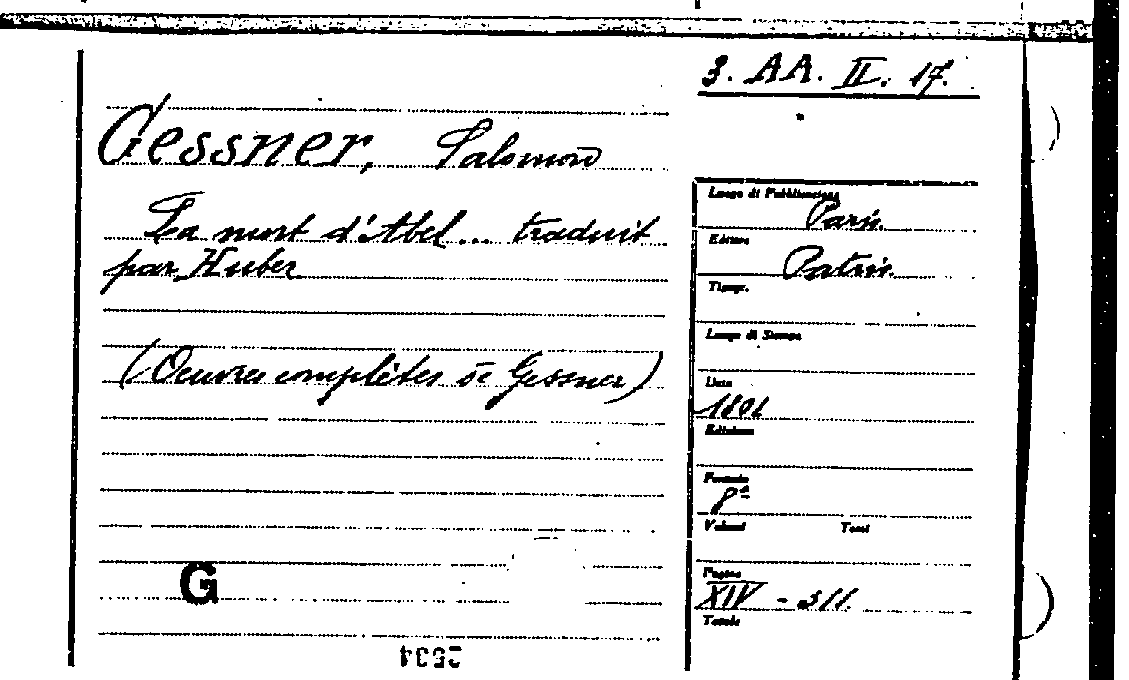 3. AA. II. 17.
Gessner, Salomon
La mort d'Abel... traduit
par Huber
(Oeuvres complètes de Gessner)
G
Luogo di Pubblicazione
Paris.
Editore
Patris.
Tipogr.
Luogo di Stampa
Data
Edizione
Formato
8º
Volumi Tomi
Pagine
XIV - 311.
Tavole